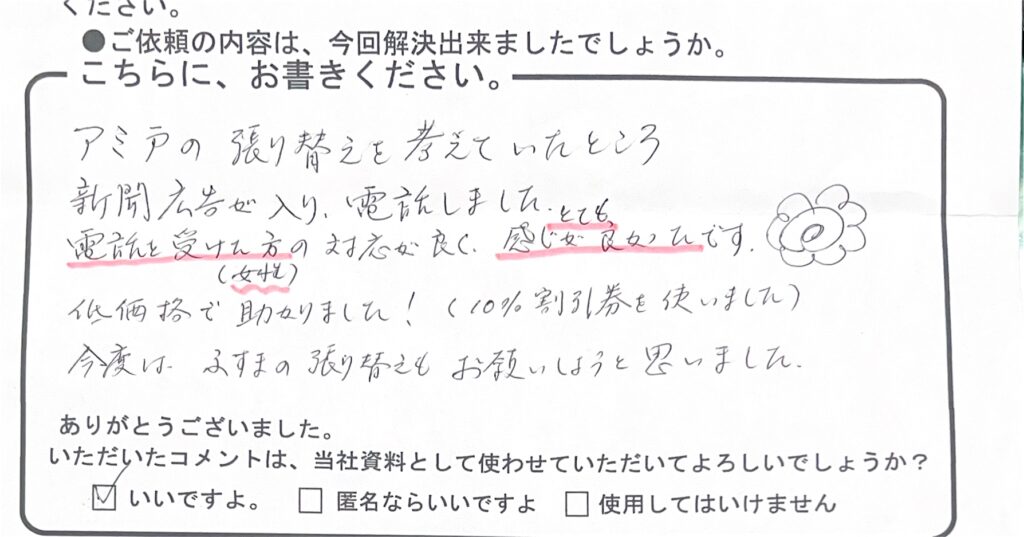 ください。
●ご依頼の内容は、今回解決出来ましたでしょうか。
こちらに、お書きください。
アミ戸の張り替えを考えていたところ
新聞広告が入り、電話しました。
電話を受けた方の対応が良く、とても、感じが良かったです。
(女性)
低価格で助かりました！(10％割引券を使いました)
今度は、ふすまの張り替えもお願いしようと思いました。
ありがとうございました。
いただいたコメントは、当社資料として使わせていただいてよろしいでしょうか？
☑ いいですよ。 □ 匿名ならいいですよ □ 使用してはいけません